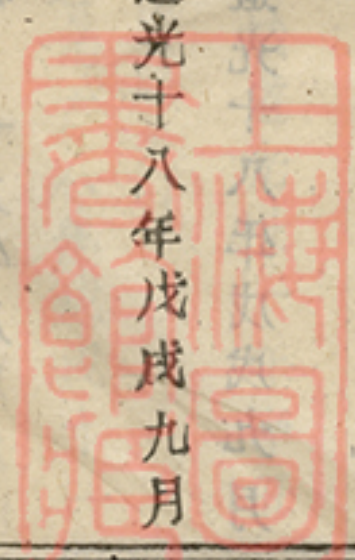 光十八年戊戌九月
上海圖
書館藏